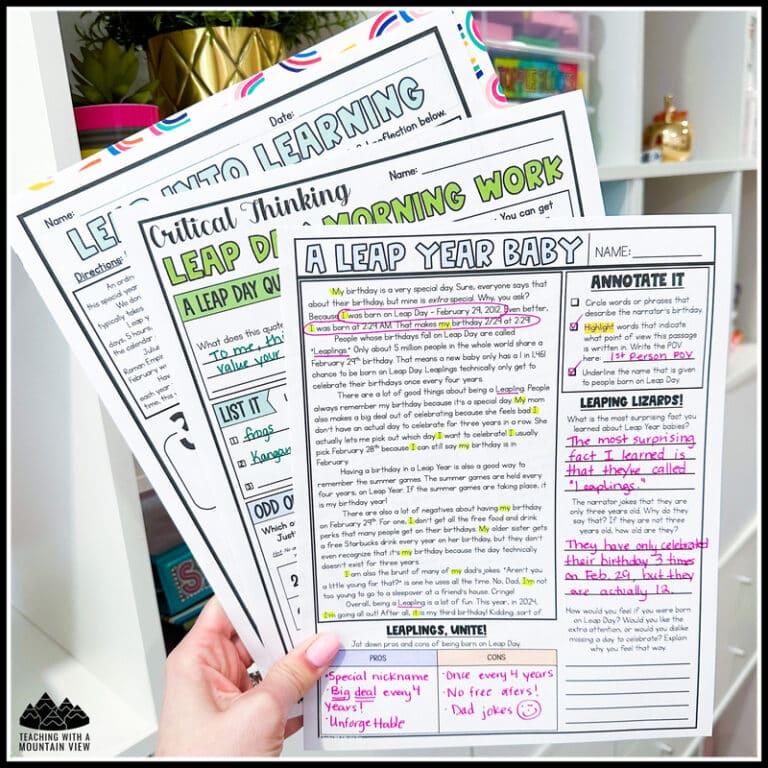 Date:
Name:
LEAP INTO LEARNING
Reflection below.
Directions:
An ordin
this special year
We don
typically takes
days, 5 hours,
the calendar
Leap y
Juliu
Roman Empir
February w
Hav
each year
time, this
Name:
Critical Thinking
LEAP DAY MORNING WORK
You can get
A LEAP DAY QU
What does this quote
To me, th
value your
LIST IT
1 frogs
2 Kangar
3
ODD O
Which o
Just
A LEAP YEAR BABY
NAME:
My birthday is a very special day. Sure, everyone says that
about their birthday, but mine is extra special. Why, you ask?
Because I was born on Leap Day – February 29, 2012. Even better,
I was born at 2:29 AM. That makes my birthday 2/29 at 2:29!
People whose birthdays fall on Leap Day are called
"Leaplings." Only about 5 million people in the whole world share a
February 29th birthday. That means a new baby only has a 1 in 1,461
chance to be born on Leap Day. Leaplings technically only get to
celebrate their birthdays once every four years.
There are a lot of good things about being a Leapling. People
always remember my birthday because it's a special day. My mom
also makes a big deal out of celebrating because she feels bad I
don't have an actual day to celebrate for three years in a row. She
actually lets me pick out which day I want to celebrate! I usually
pick February 28th because I can still say my birthday is in
February.
Having a birthday in a Leap Year is also a good way to
remember the summer games. The summer games are held every
four years, on Leap Year. If the summer games are taking place, it
is my birthday year!
There are also a lot of negatives about having my birthday
on February 29th. For one, I don't get all the free food and drink
perks that many people get on their birthdays. My older sister gets
a free Starbucks drink every year on her birthday, but they don't
even recognize that it's my birthday because the day technically
doesn't exist for three years.
I am also the brunt of many of my dad's jokes. "Aren't you
a little young for that?" is one he uses all the time. No, Dad, I'm not
too young to go to a sleepover at a friend's house. Cringe!
Overall, being a Leapling is a lot of fun. This year, in 2024,
I'm going all out! After all, it is my third birthday! Kidding, sort of.
LEAPLINGS, UNITE!
Jot down pros and cons of being born on Leap Day.
PROS
CONS
• Special nickname
• Big deal every 4
years!
• Unforgettable
• Once every 4 years
• No free afers!
• Dad jokes
ANNOTATE IT
Circle words or phrases that
describe the narrator's birthday.
Highlight words that indicate
what point of view this passage
is written in. Write the POV
here: 1st Person POV
Underline the name that is given
to people born on Leap Day.
LEAPING LIZARDS!
What is the most surprising fact you
learned about Leap Year babies?
The most surprising
fact I learned is
that they're called
"Leaplings."
The narrator jokes that they are
only three years old. Why do they
say that? If they are not three
years old, how old are they?
They have only celebrated
their birthday 3 times
on Feb. 29, but they
are actually 12.
How would you feel if you were born
on Leap Day? Would you like the
extra attention, or would you dislike
missing a day to celebrate? Explain
why you feel that way.
TEACHING WITH A
MOUNTAIN VIEW